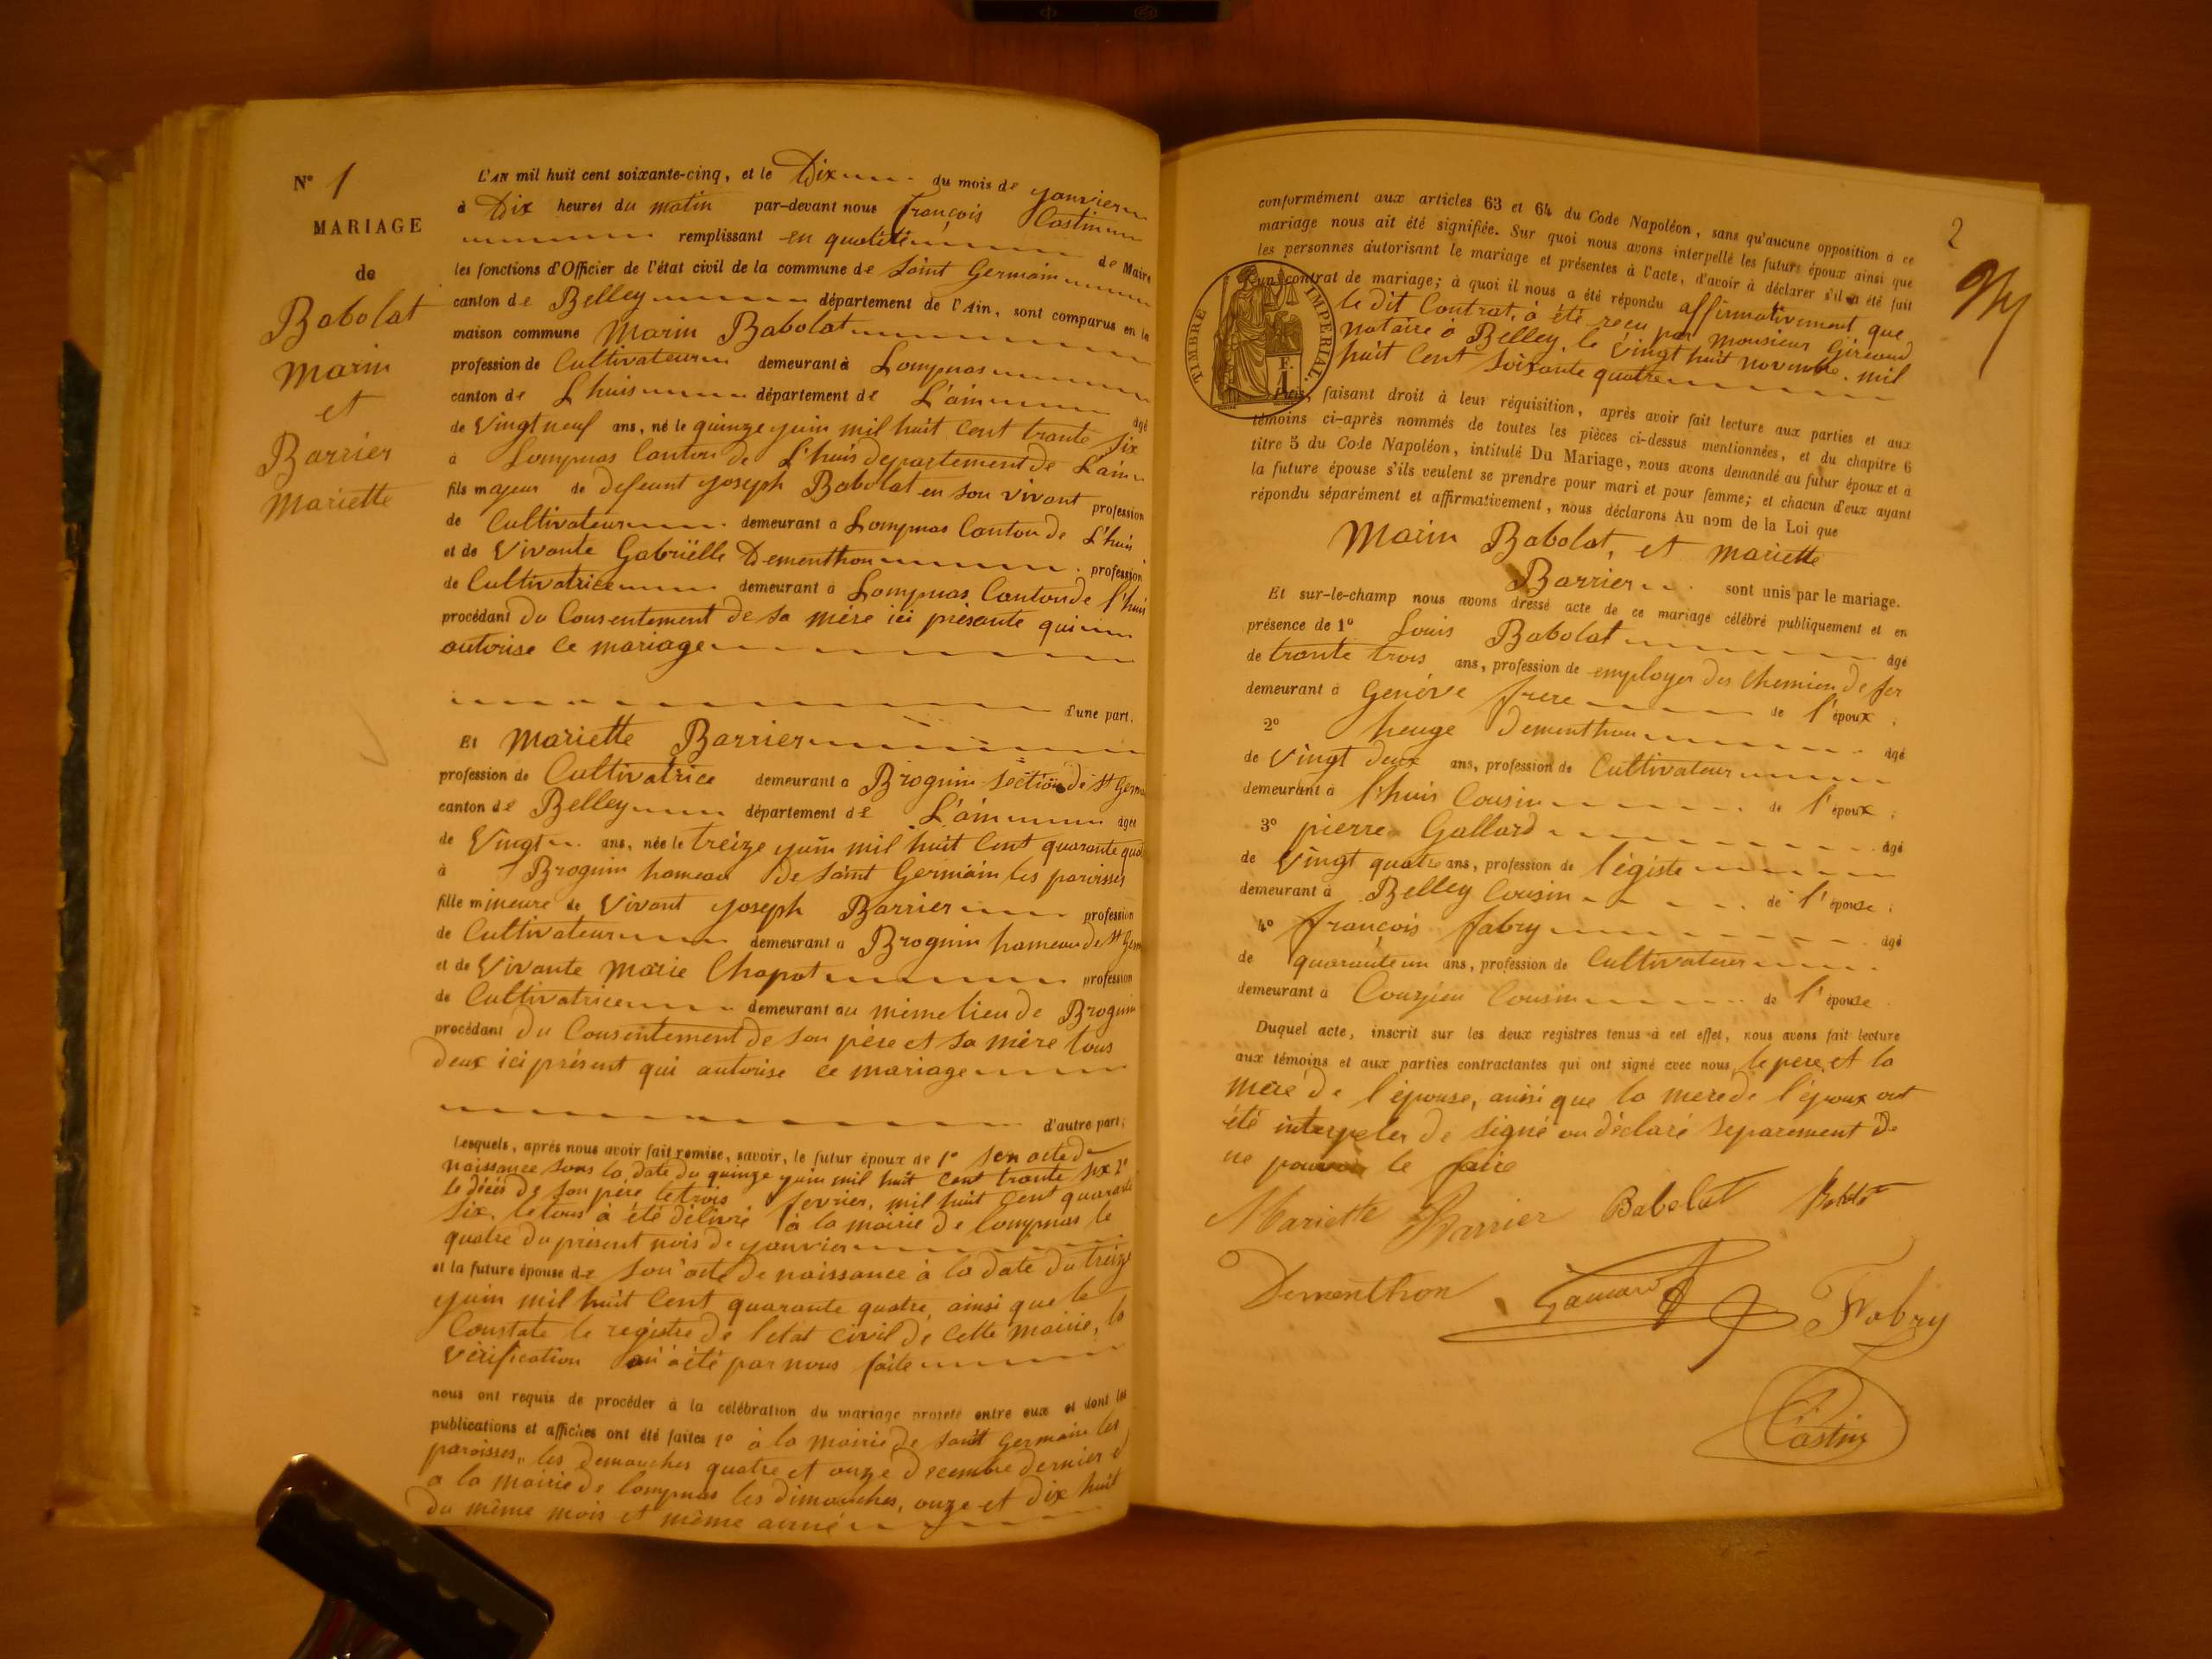 N° 1
MARIAGE
de
Babolat
Marin
et
Barrier
Mariette
L'AN mil huit cent soixante-cinq, et le Dix du mois de yanvier
à Dix heures du matin par-devant nous françois Castin
remplissant en qualité de Maire
les fonctions d'Officier de l'état civil de la commune de Saint Germain
canton de Belley département de l'Ain, sont comparus en la
maison commune Marin Babolat
profession de Cultivateur demeurant à Lompnas
canton de L'huis département de L'ain agé
de Vingt neuf ans, né le quinze yuin mil huit cent trante six
à Lompnas Canton de L'huis departement de L'ain
fils majeur de defeunt yoseph Babolat en son vivant profession
de Cultivateur demeurant à Lompnas Canton de L'huis
et de Vivante Gabriëlle Dementhon profession
de Cultivatrice demeurant à Lompnas Canton de l'huis
procédant du Consentement de sa mère ici présante qui
autorise ce mariage
d'une part.
Et Mariette Barrier
profession de Cultivatrice demeurant à Brognin section de St Germ
canton de Belley département de L'ain agée
de Vingt ans, née le treize yuin mil huit cent quarante quat
à Brognin hameau de Saint Germain les paroisses
fille mineure de Vivant yoseph Barrier profession
de Cultivateur demeurant à Brognin hameau de St Germ
et de Vivante Marie Chapot profession
de Cultivatrice demeurant au même lieu de Brognin
procédant du Consentement de son père et sa mère tous
deux ici présent qui autorise ce mariage
d'autre part;
Lesquels, après nous avoir fait remise, savoir, le futur époux de 1° son acte de
naissance sous la date du quinze yuin mil huit cent trante six 2°
le décés de son père le trois fevrier, mil huit cent quarante
six, le tous à été délivré à la mairie de lompnas le
quatre du présent mois de yanvier
et la future épouse de son acte de naissance à la date du treize
yuin mil huit cent quarante quatre, ainsi que le
Constate le registre de l'etat civil de cette mairie, la
Vérification en à été par nous faite
nous ont requis de procéder à la célébration du mariage projeté entre eux et dont les
publications et affiches ont été faites 1° à la mairie de Saint Germain les
paroisses, les demanches quatre et onze decembre dernier et
à la mairie de lompnas les dimanches, onze et dix huit
du même mois et même année
2
conformément aux articles 63 et 64 du Code Napoléon, sans qu'aucune opposition à ce
mariage nous ait été signifiée. Sur quoi nous avons interpellé les futurs époux ainsi que
les personnes autorisant le mariage et présentes à l'acte, d'avoir à déclarer s'il a été fait
un contrat de mariage; à quoi il nous a été répondu affirmativement que
le dit Contrat, à été reçu par Monsieur Giraud
notaire à Belley, le vingt huit novembre. mil
huit Cent Soixante quatre
TIMBRE IMPERIAL.
1 F.
Puis, faisant droit à leur réquisition, après avoir fait lecture aux parties et aux
témoins ci-après nommés de toutes les pièces ci-dessus mentionnées, et du chapitre 6
titre 5 du Code Napoléon, intitulé Du Mariage, nous avons demandé au futur époux et à
la future épouse s'ils veulent se prendre pour mari et pour femme; et chacun d'eux ayant
répondu séparément et affirmativement, nous déclarons Au nom de la Loi que
Marin Babolat, et Mariette
Barrier sont unis par le mariage.
Et sur-le-champ nous avons dressé acte de ce mariage célébré publiquement et en
présence de 1° Louis Babolat agé
de trante trois ans, profession de employer des chemien de fer
demeurant à Genève frere de l'époux;
2° heuge Dementhon agé
de Vingt deux ans, profession de Cultivateur
demeurant à l'huis Cousin de l'époux;
3° pierre Gallard agé
de Vingt quatre ans, profession de légiste
demeurant à Belley Cousin de l'épouse;
4° françois fabry agé
de quarante un ans, profession de Cultivateur
demeurant à Couzieu Cousin de l'épouse
Duquel acte, inscrit sur les deux registres tenus à cet effet, nous avons fait lecture
aux témoins et aux parties contractantes qui ont signé avec nous, le pere et la
mère de l'épouse, ainsi que la mere de l'époux ont
été interpeler de signé on déclaré separement de
ne pouvoir le faire
Mariette Barrier Babolat
Dementhon Fabry
Castin